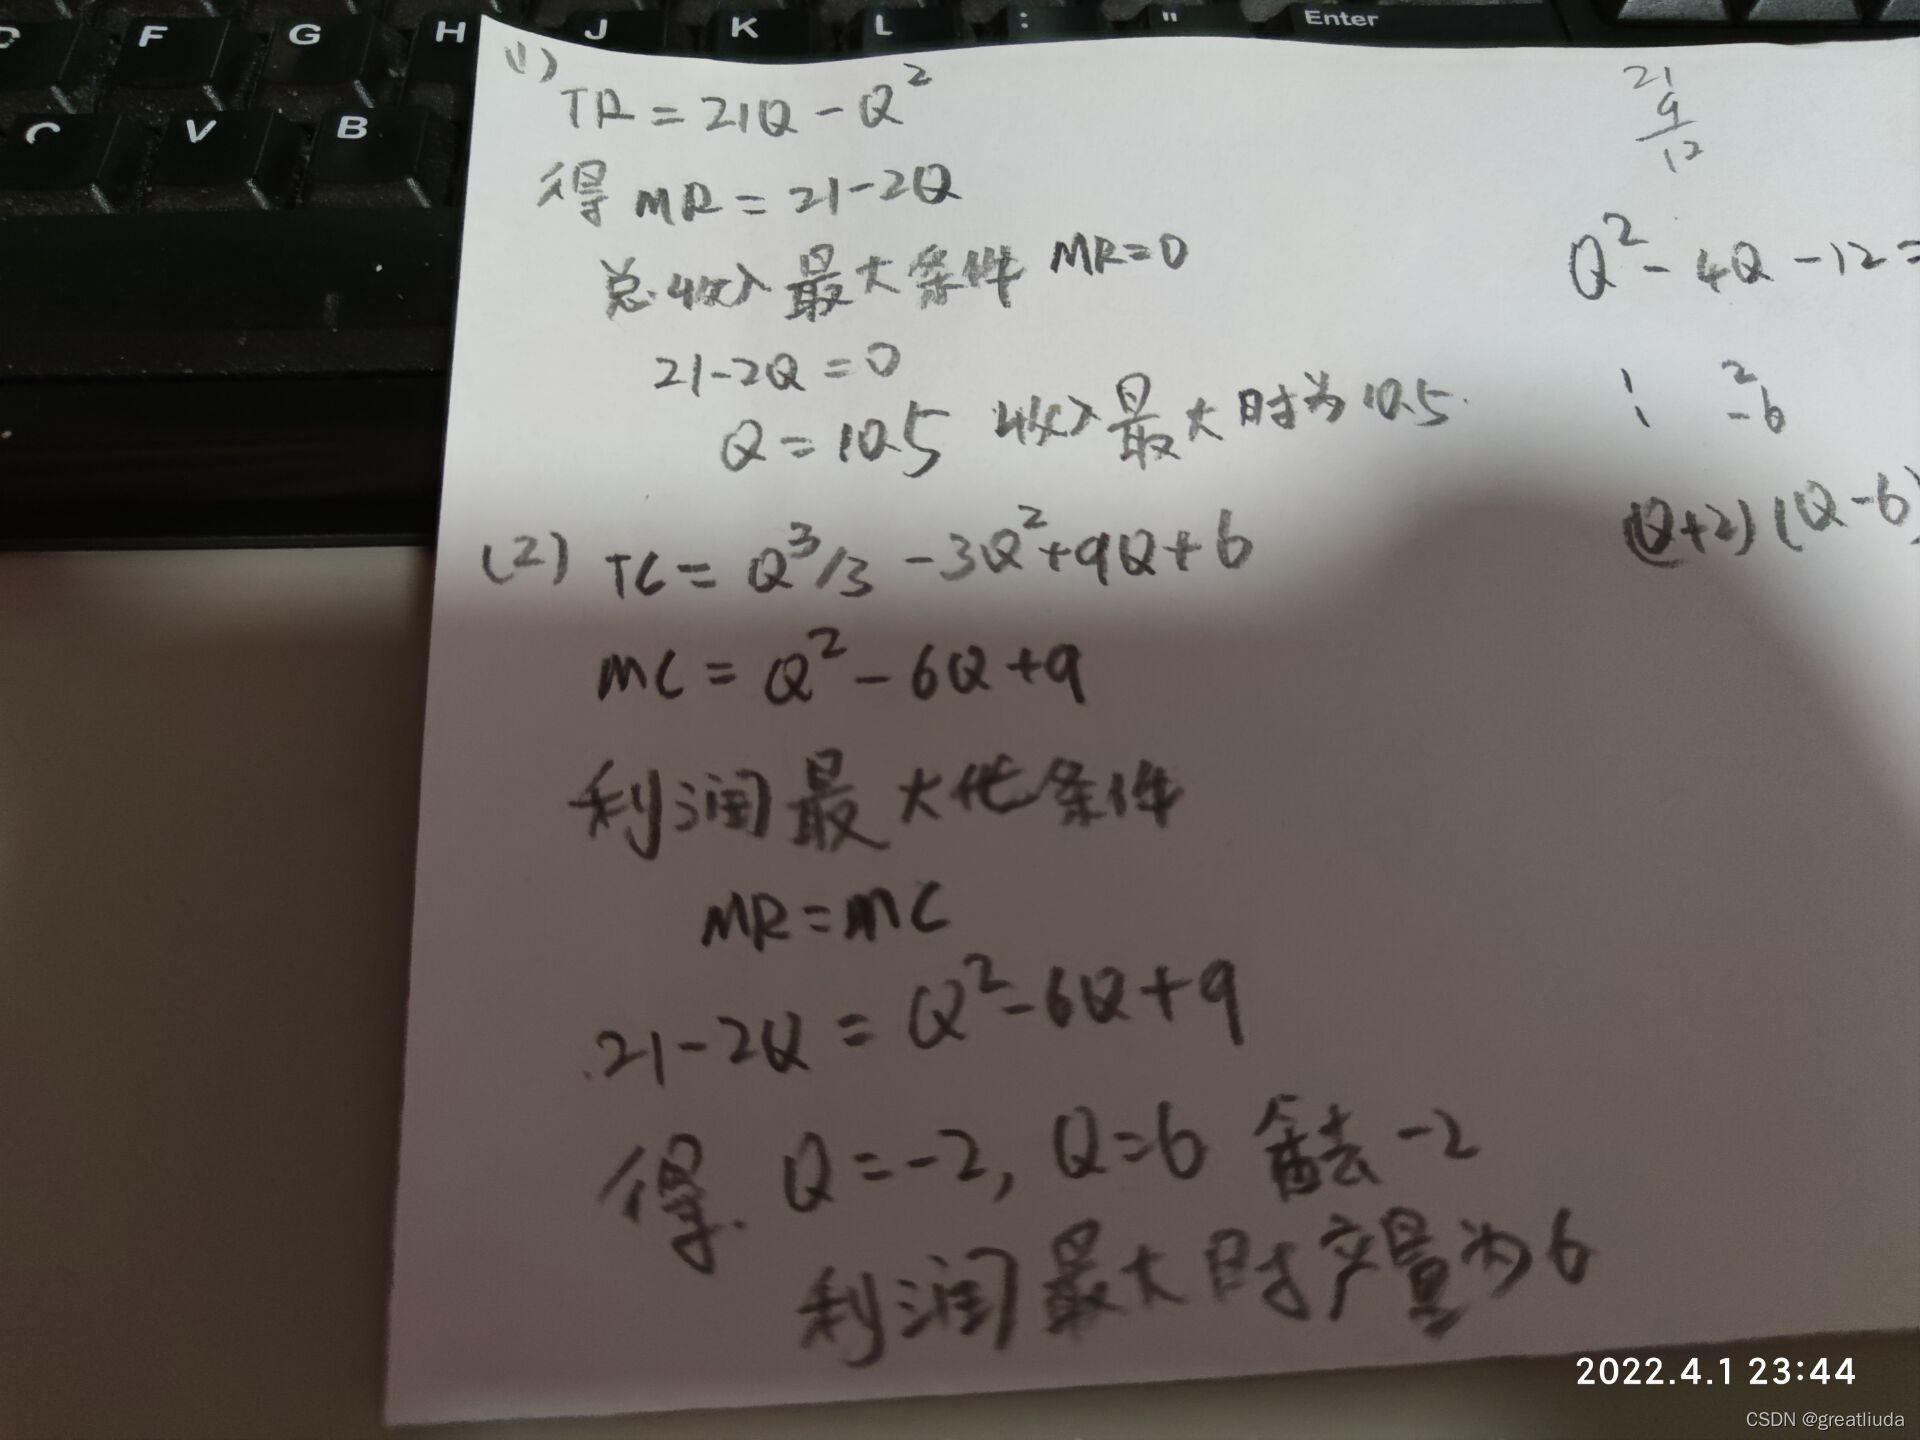 F G H J K L : " Enter
C V B
(1)
TR = 21Q - Q²
得 MR = 21-2Q
总收入最大条件 MR=0
21-2Q = 0
Q = 10.5 收入最大时为10.5.
(2) TC = Q³/3 - 3Q²+9Q+6
MC = Q² - 6Q +9
利润最大化条件
MR = MC
21-2Q = Q²-6Q+9
得. Q = -2, Q=6 舍去 -2
利润最大时产量为6
21
9
12
Q² - 4Q -12 =
1 2
1 -6
(Q+2) (Q-6)
2022.4.1 23:44
CSDN @greatliuda